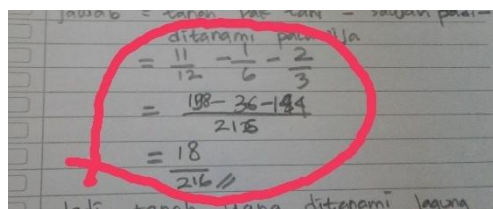 jawab = tanah Pak tani - sawah padi -
ditanami palawija
= 11/12 - 1/6 - 2/3
= 198 - 36 - 144 / 216
= 18/216 //
Jadi tanah yang ditanami jagung